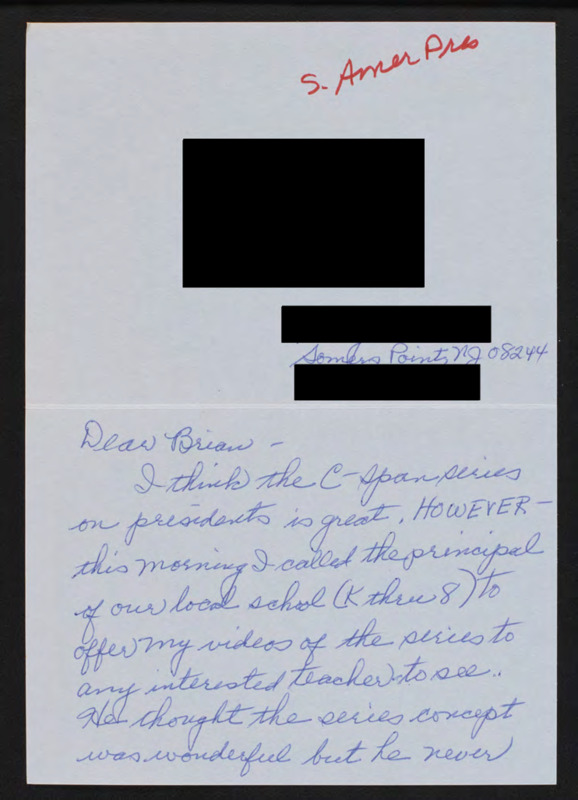 S. Amer Pres
Somers Point, NJ 08244
Dear Brian -
I think the C-Span series
on presidents is great. HOWEVER -
this morning I called the principal
of our local school (K thru 8) to
offer my videos of the series to
any interested teacher to see..
He thought the series concept
was wonderful but he never